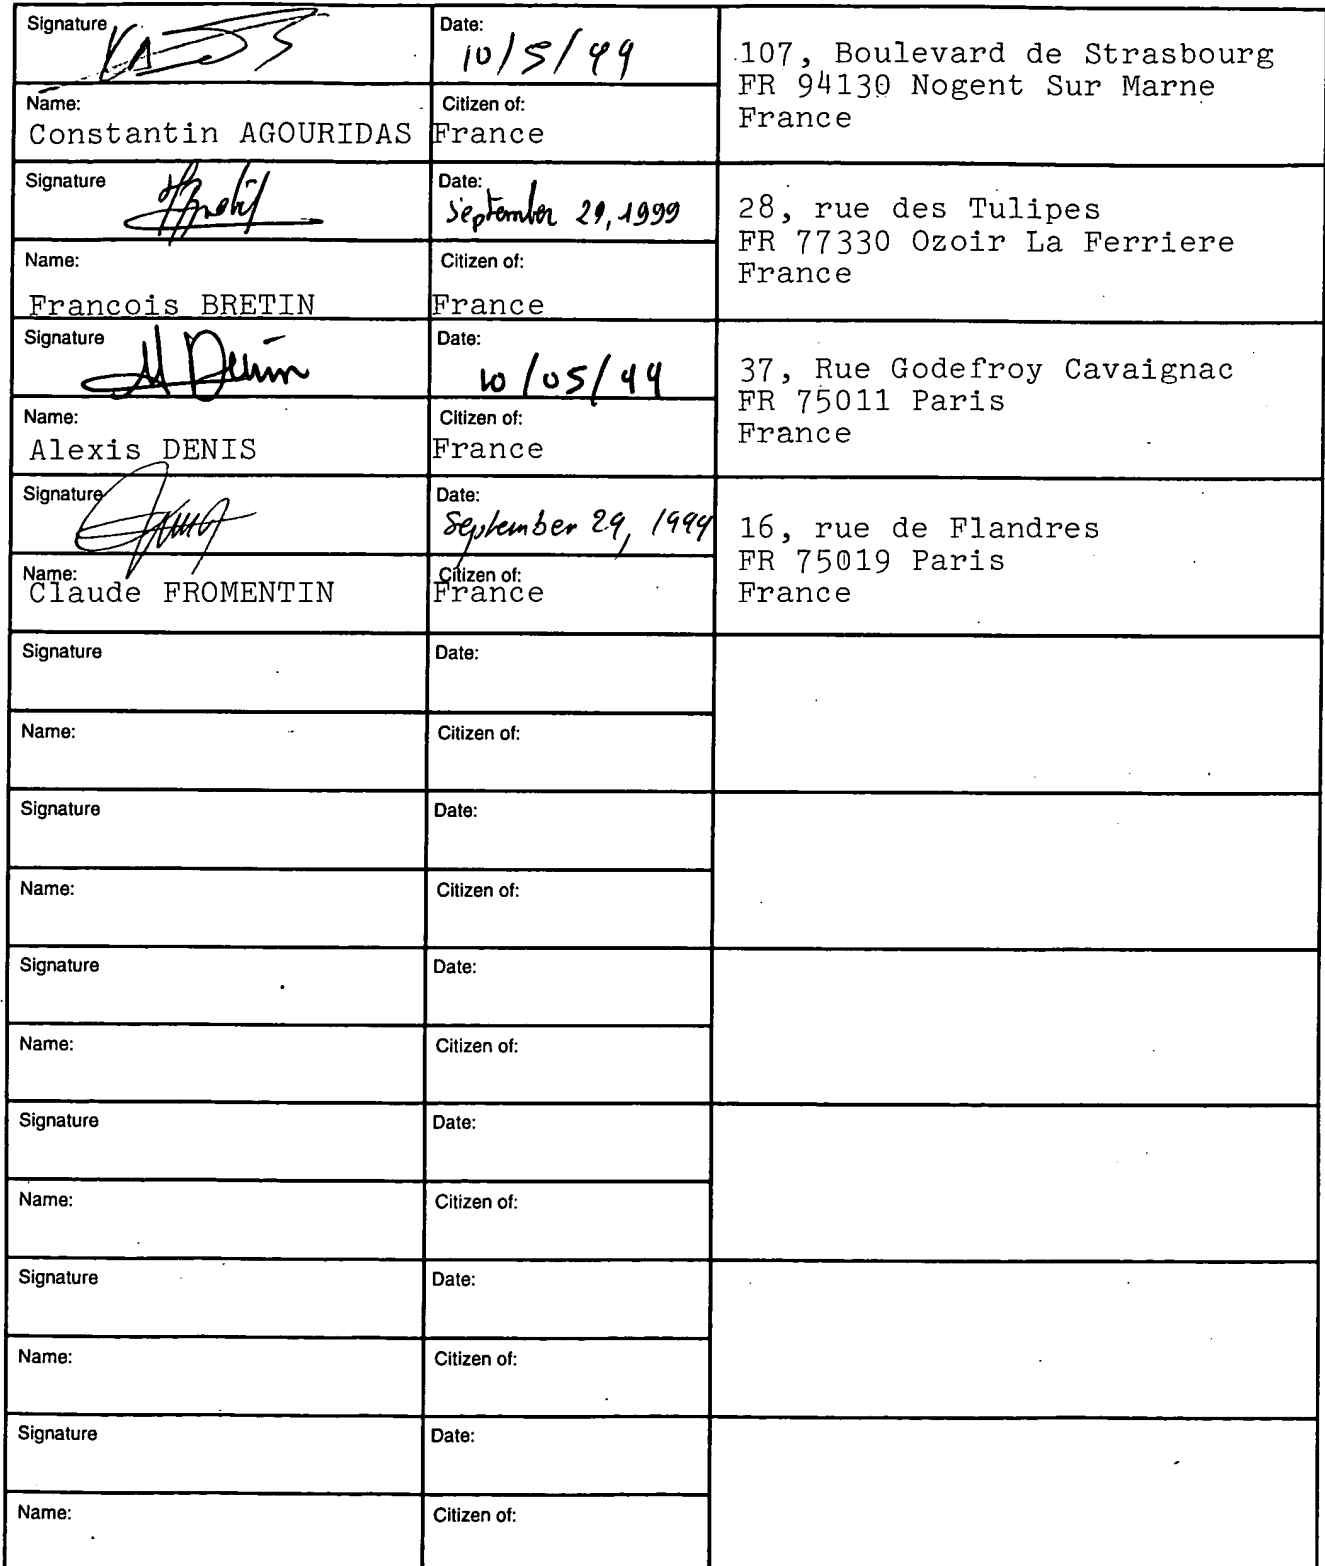 Signature
Date:
10/5/99
107, Boulevard de Strasbourg
FR 94130 Nogent Sur Marne
France
Name:
Constantin AGOURIDAS
Citizen of:
France
Signature
Date:
September 29, 1999
28, rue des Tulipes
FR 77330 Ozoir La Ferriere
France
Name:
Francois BRETIN
Citizen of:
France
Signature
Date:
10/05/99
37, Rue Godefroy Cavaignac
FR 75011 Paris
France
Name:
Alexis DENIS
Citizen of:
France
Signature
Date:
September 29, 1999
16, rue de Flandres
FR 75019 Paris
France
Name:
Claude FROMENTIN
Citizen of:
France
Signature
Date:
Name:
Citizen of:
Signature
Date:
Name:
Citizen of:
Signature
Date:
Name:
Citizen of:
Signature
Date:
Name:
Citizen of:
Signature
Date:
Name:
Citizen of:
Signature
Date:
Name:
Citizen of: